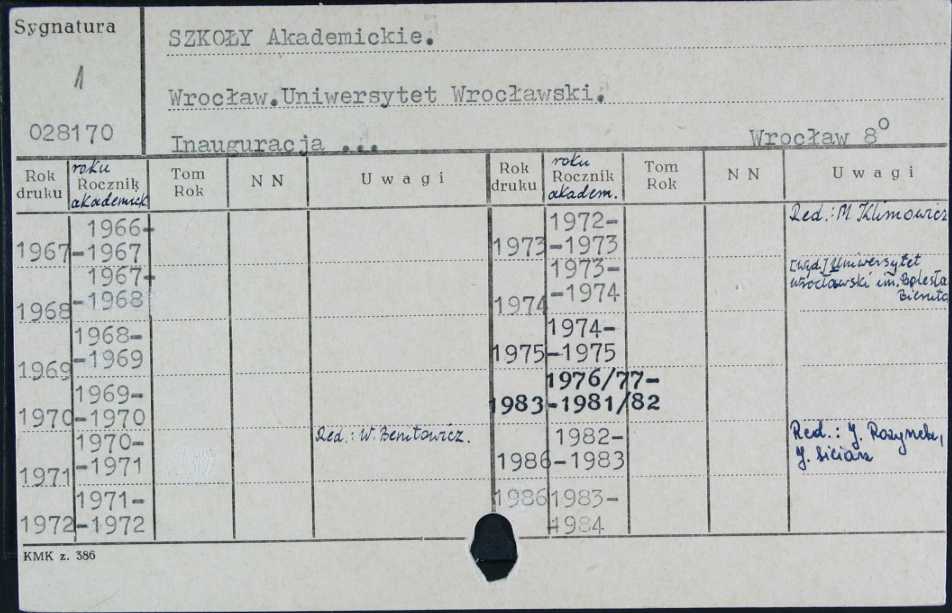 Sygnatura
1
028170
SZKOŁY Akademickie.
Wrocław.Uniwersytet Wrocławski.
Inauguracja ...
Wrocław 8°
Rok druku
roku
Rocznik
akademick
Tom Rok
N N
Uwagi
Rok druku
roku
Rocznik
akadem.
Tom Rok
N N
Uwagi
1966-
1967 -1967
1967-
1968 -1968
1968-
1969 -1969
1969-
1970 -1970
1970-
1971 -1971
Red.: W. Benitowicz.
1971-
1972 -1972
1972-
1973 -1973
Red.: M Klimowicz
1973-
1974 -1974
[wyd.] Uniwersytet
Wrocławski im. Bolesła
Bieruta
1974-
1975 -1975
1976/77-
1983 -1981/82
1982-
1986 -1983
Red.: J.
J.
1986 1983-
-1984
KMK z. 386